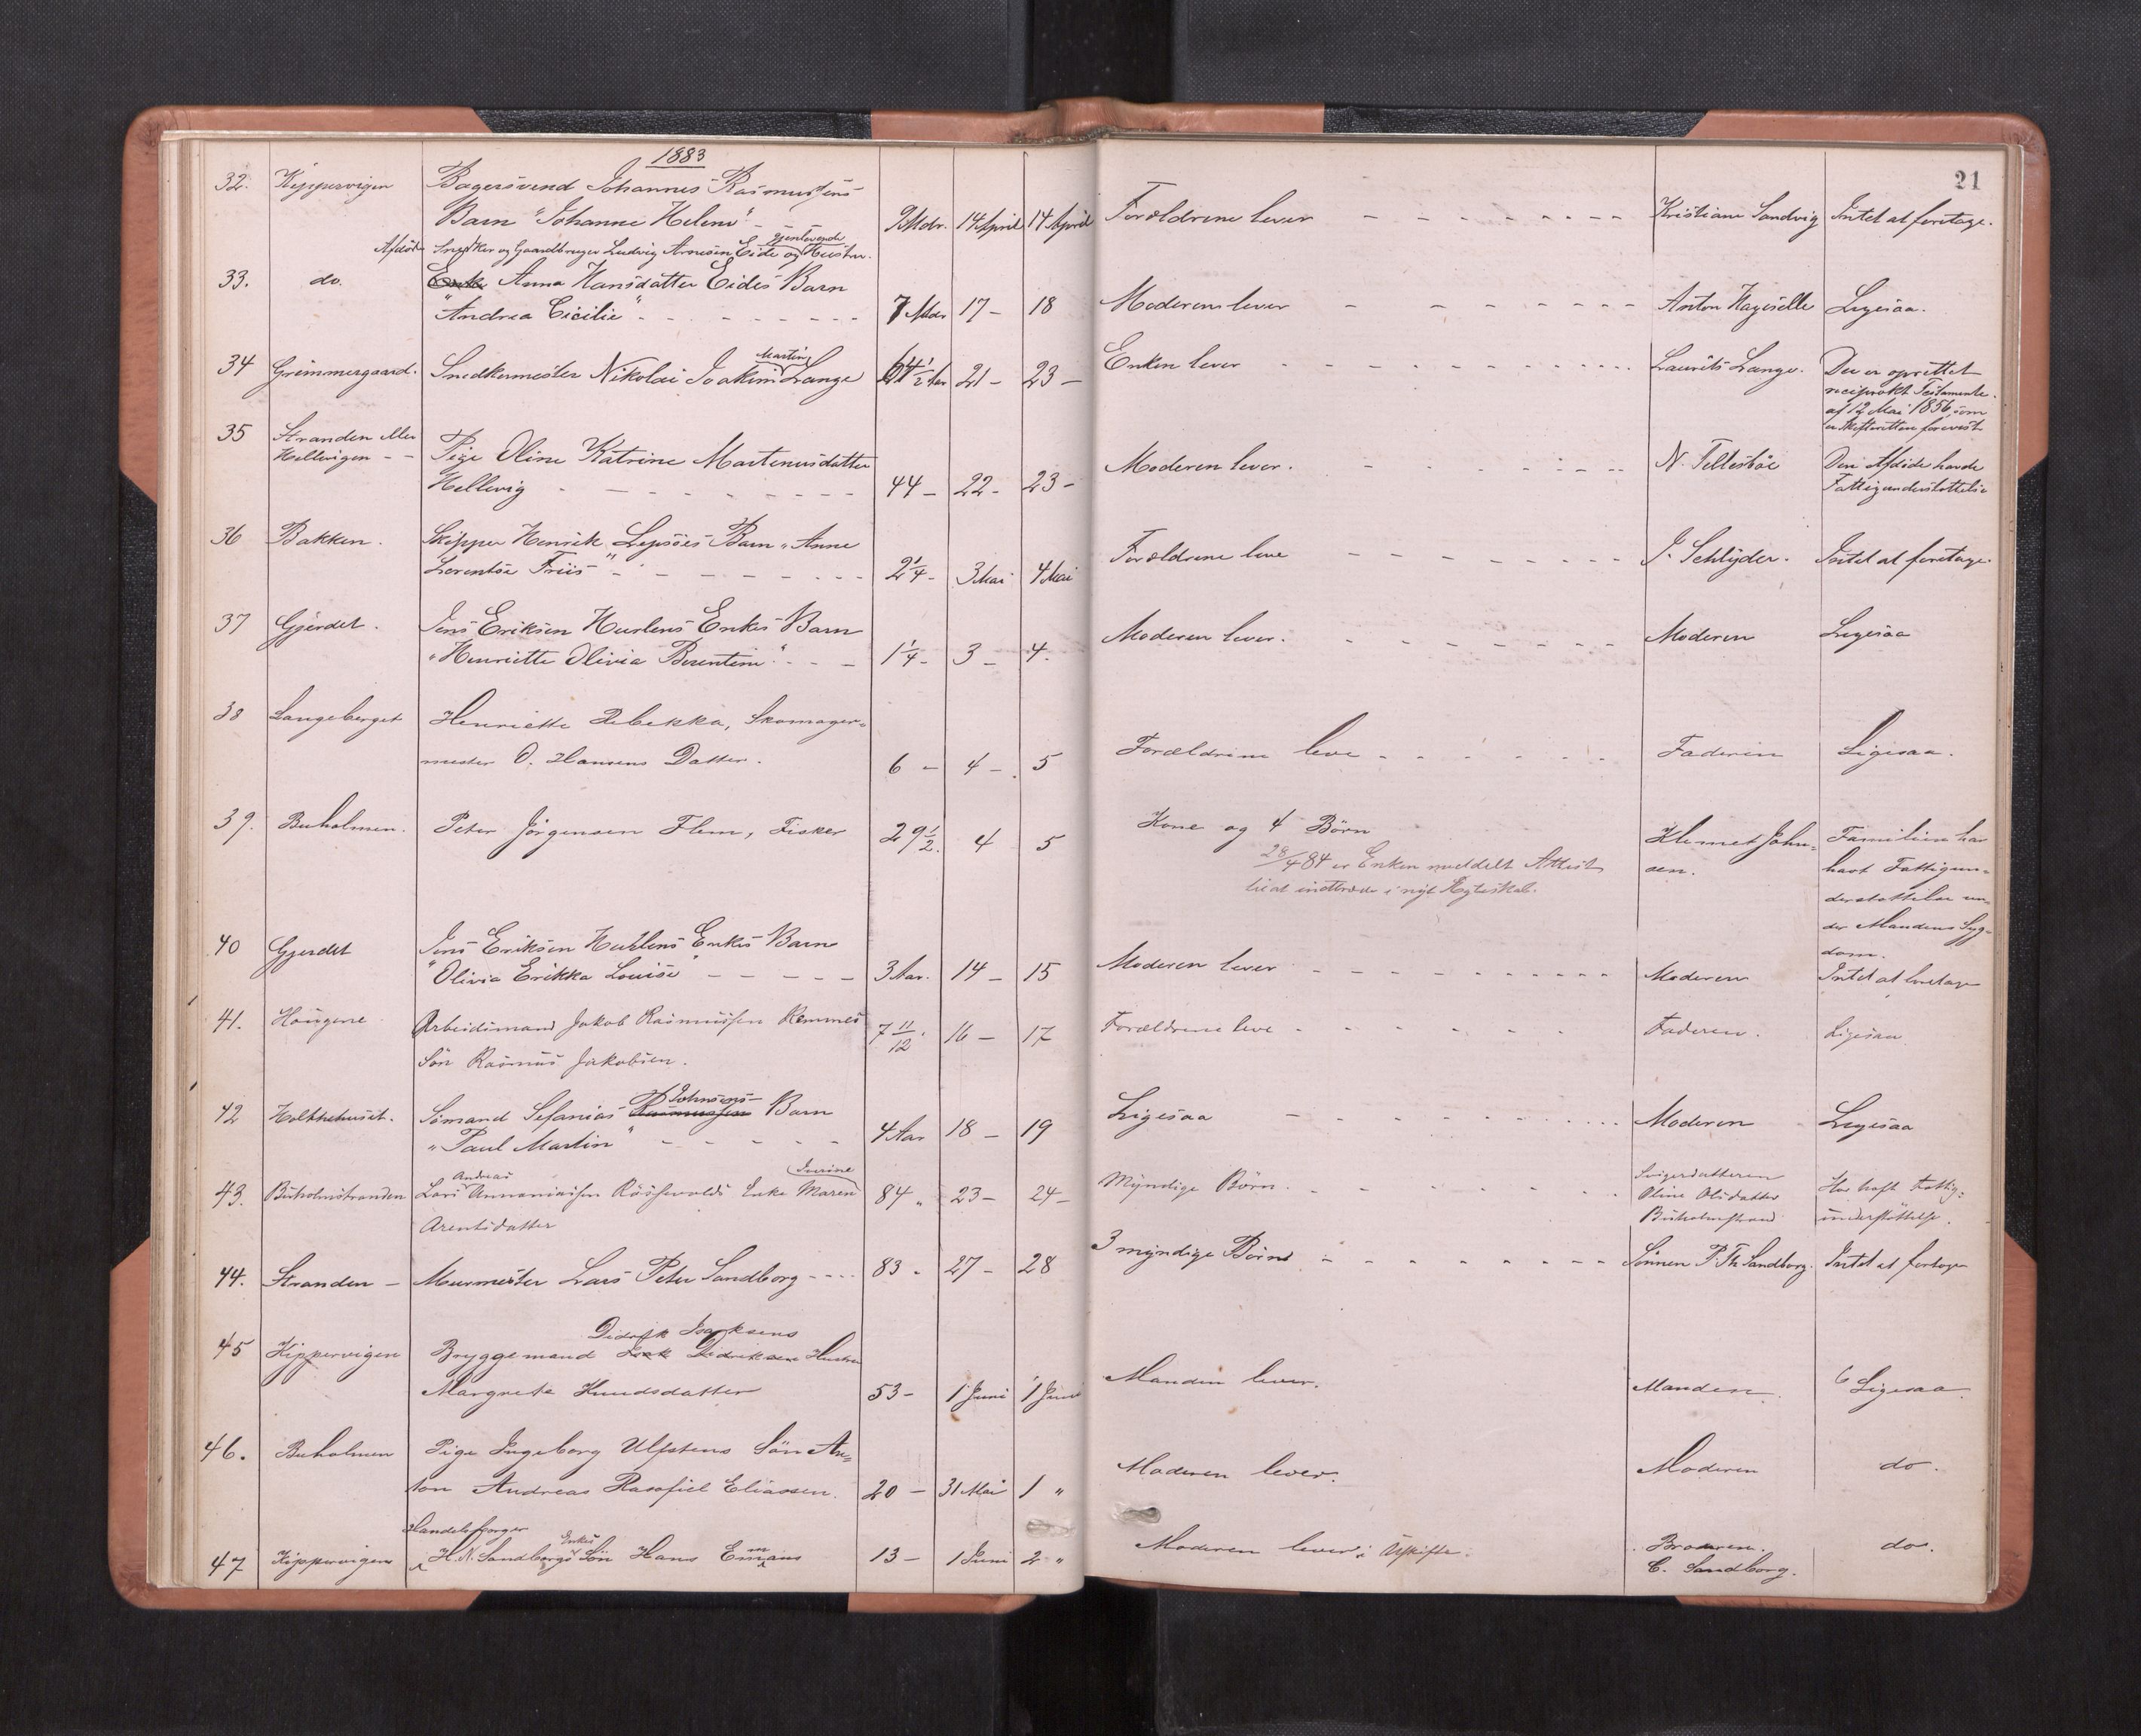 1883
21
32. Kippervigen Bagersvend Johannes Rasmussens
Barn "Johanne Helene" - 9 Mdr. 14 April 14 April Forældrene lever - - - - - - - - Kristiane Sandvig Intet at foretage.
Afdöde Snedker og Gaardbruger Ludvig Arnesen Eide og gjenlevende Hustru
33. do. Enke Anna Hansdatter Eides Barn
"Andrea Cicilie" - - - - - - - - 7 Mdr 17 - 18 Moderen lever - - - - - - - Anton Ligesaa.
34 Grimmergaard. Snedkermester Nikolai Joakim Martin Lange 64 1/2 Aar 21 - 23 - Enken lever - - - - - - - - - - Laurits Lange. Der er oprettet
reciprokt Testamente
af 12 Mai 1856, som
er Skifteretten forevist
35 Stranden eller
Hellevigen - - Pige Oline Katrine Martinusdatter
Hellevig - - - - - - - - - 44 - 22 - 23 - Moderen lever. - - - - - - N. Tellesböe Den Afdöde havde
Fattigunderstöttelse
36 Bakken. Skipper Henrik Lepsöes Barn "Anne
Lorentse Friis" - - - - - - - - 2 1/4 - 3 Mai 4 Mai Forældrene leve - - - - - - - J. Schlyder. Intet at foretage.
37 Gjerdet. Jens Eriksen Hurlens Enkes Barn
"Henriette Olivia Berentine" - - - 1 1/4 - 3 - 4. Moderen lever. - - - - - - - Moderen Ligesaa
38 Langeberget Henriette Rebekka, Skomager-
mester O. Hansens Datter. 6 - 4 - 5 Forældrene leve - - - - - - Faderen Ligesaa.
39. Buholmen. Peter Jörgensen Flem, Fisker 29 1/2. 4 5 Kone og 4 Börn Klemet John-
sen. Familien har
28/4 84 er Enken meddelt Attest
til at indtræde i nyt Ægteskab.
havt Fattigun-
derstöttelse un-
der Mandens Syg-
dom.
40 Gjerdet Jens Eriksen Hurlens Enkes Barn
"Olivia Erikka Louise" - - - - - 3 Aar. 14 - 15 Moderen lever - - - - - - - - - - Moderen Intet at foretage
41. Haugene Arbeidsmand Jakob Rasmussen Remmes
Sön Rasmus Jakobsen. 7 11/12. 16 - 17 Forældrene leve - - - - - - - Faderen. Ligesaa
42 Holkehuset. Sömand Sefanias Rasmussens Johnsens Barn
"Paul Martin" - - - - - 4 Aar 18 - 19 Ligesaa - - - - - - - - Moderen Ligesaa
43. Buholmstranden Lars Andreas Annaniassen Rösvolds Enke Maren Jverine
Arentsdatter 84 " 23 - 24 - Myndige Börn. - - - - - - - Svigerdatteren
Oline Olsdatter
Buholmstrand Har haft Fattig-
understöttelse.
44. Stranden - Murmester Lars Peter Sandborg - - - - 83 - 27 - 28 3 myndige Börn - - - - - - - - - Sönnen P. Th. Sandborg. Intet at foretage
45 Kippervigen Bryggemand Isak Didriksen Didrik Isaksens Hustru
Margrete Knudsdatter 53 - 1 Juni 1 Juni Manden lever. Manden. Ligesaa.
46. Buholmen Pige Ingeborg Ulfstens Sön An-
ton Andreas Rasofiel Eliassen. 20 - 31 Mai 1 " Moderen lever. Moderen do.
47 Kippervigen Handelsborger H. N. Sandborgs Enkes Sön Hans Emanus 13 - 1 Juni 2 " Moderen lever i Uskifte. Broderen
C. Sandborg. do.